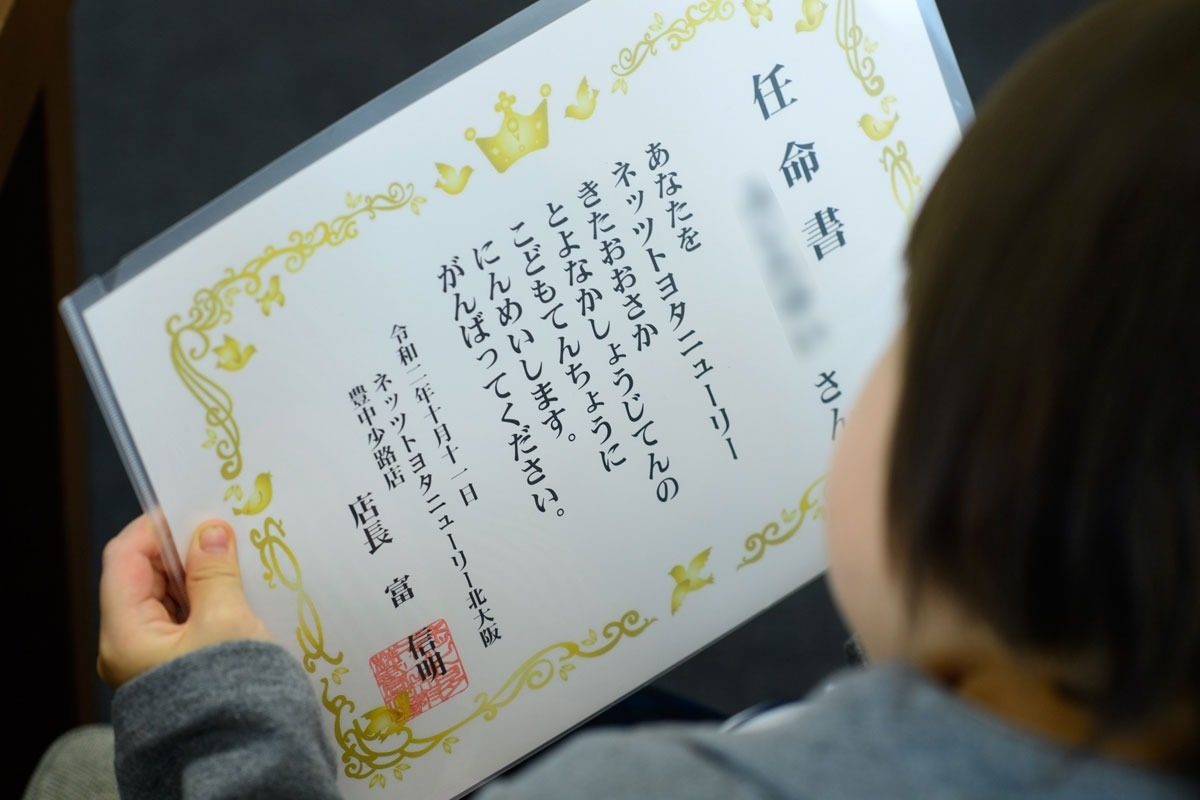 任命書
さん
あなたを
ネッツトヨタニューリー
きたおおさか
とよなかしょうじてんの
こどもてんちょうに
にんめいします。
がんばってください。
令和二年十月十一日
ネッツトヨタニューリー北大阪
豊中少路店
店長 富 信明